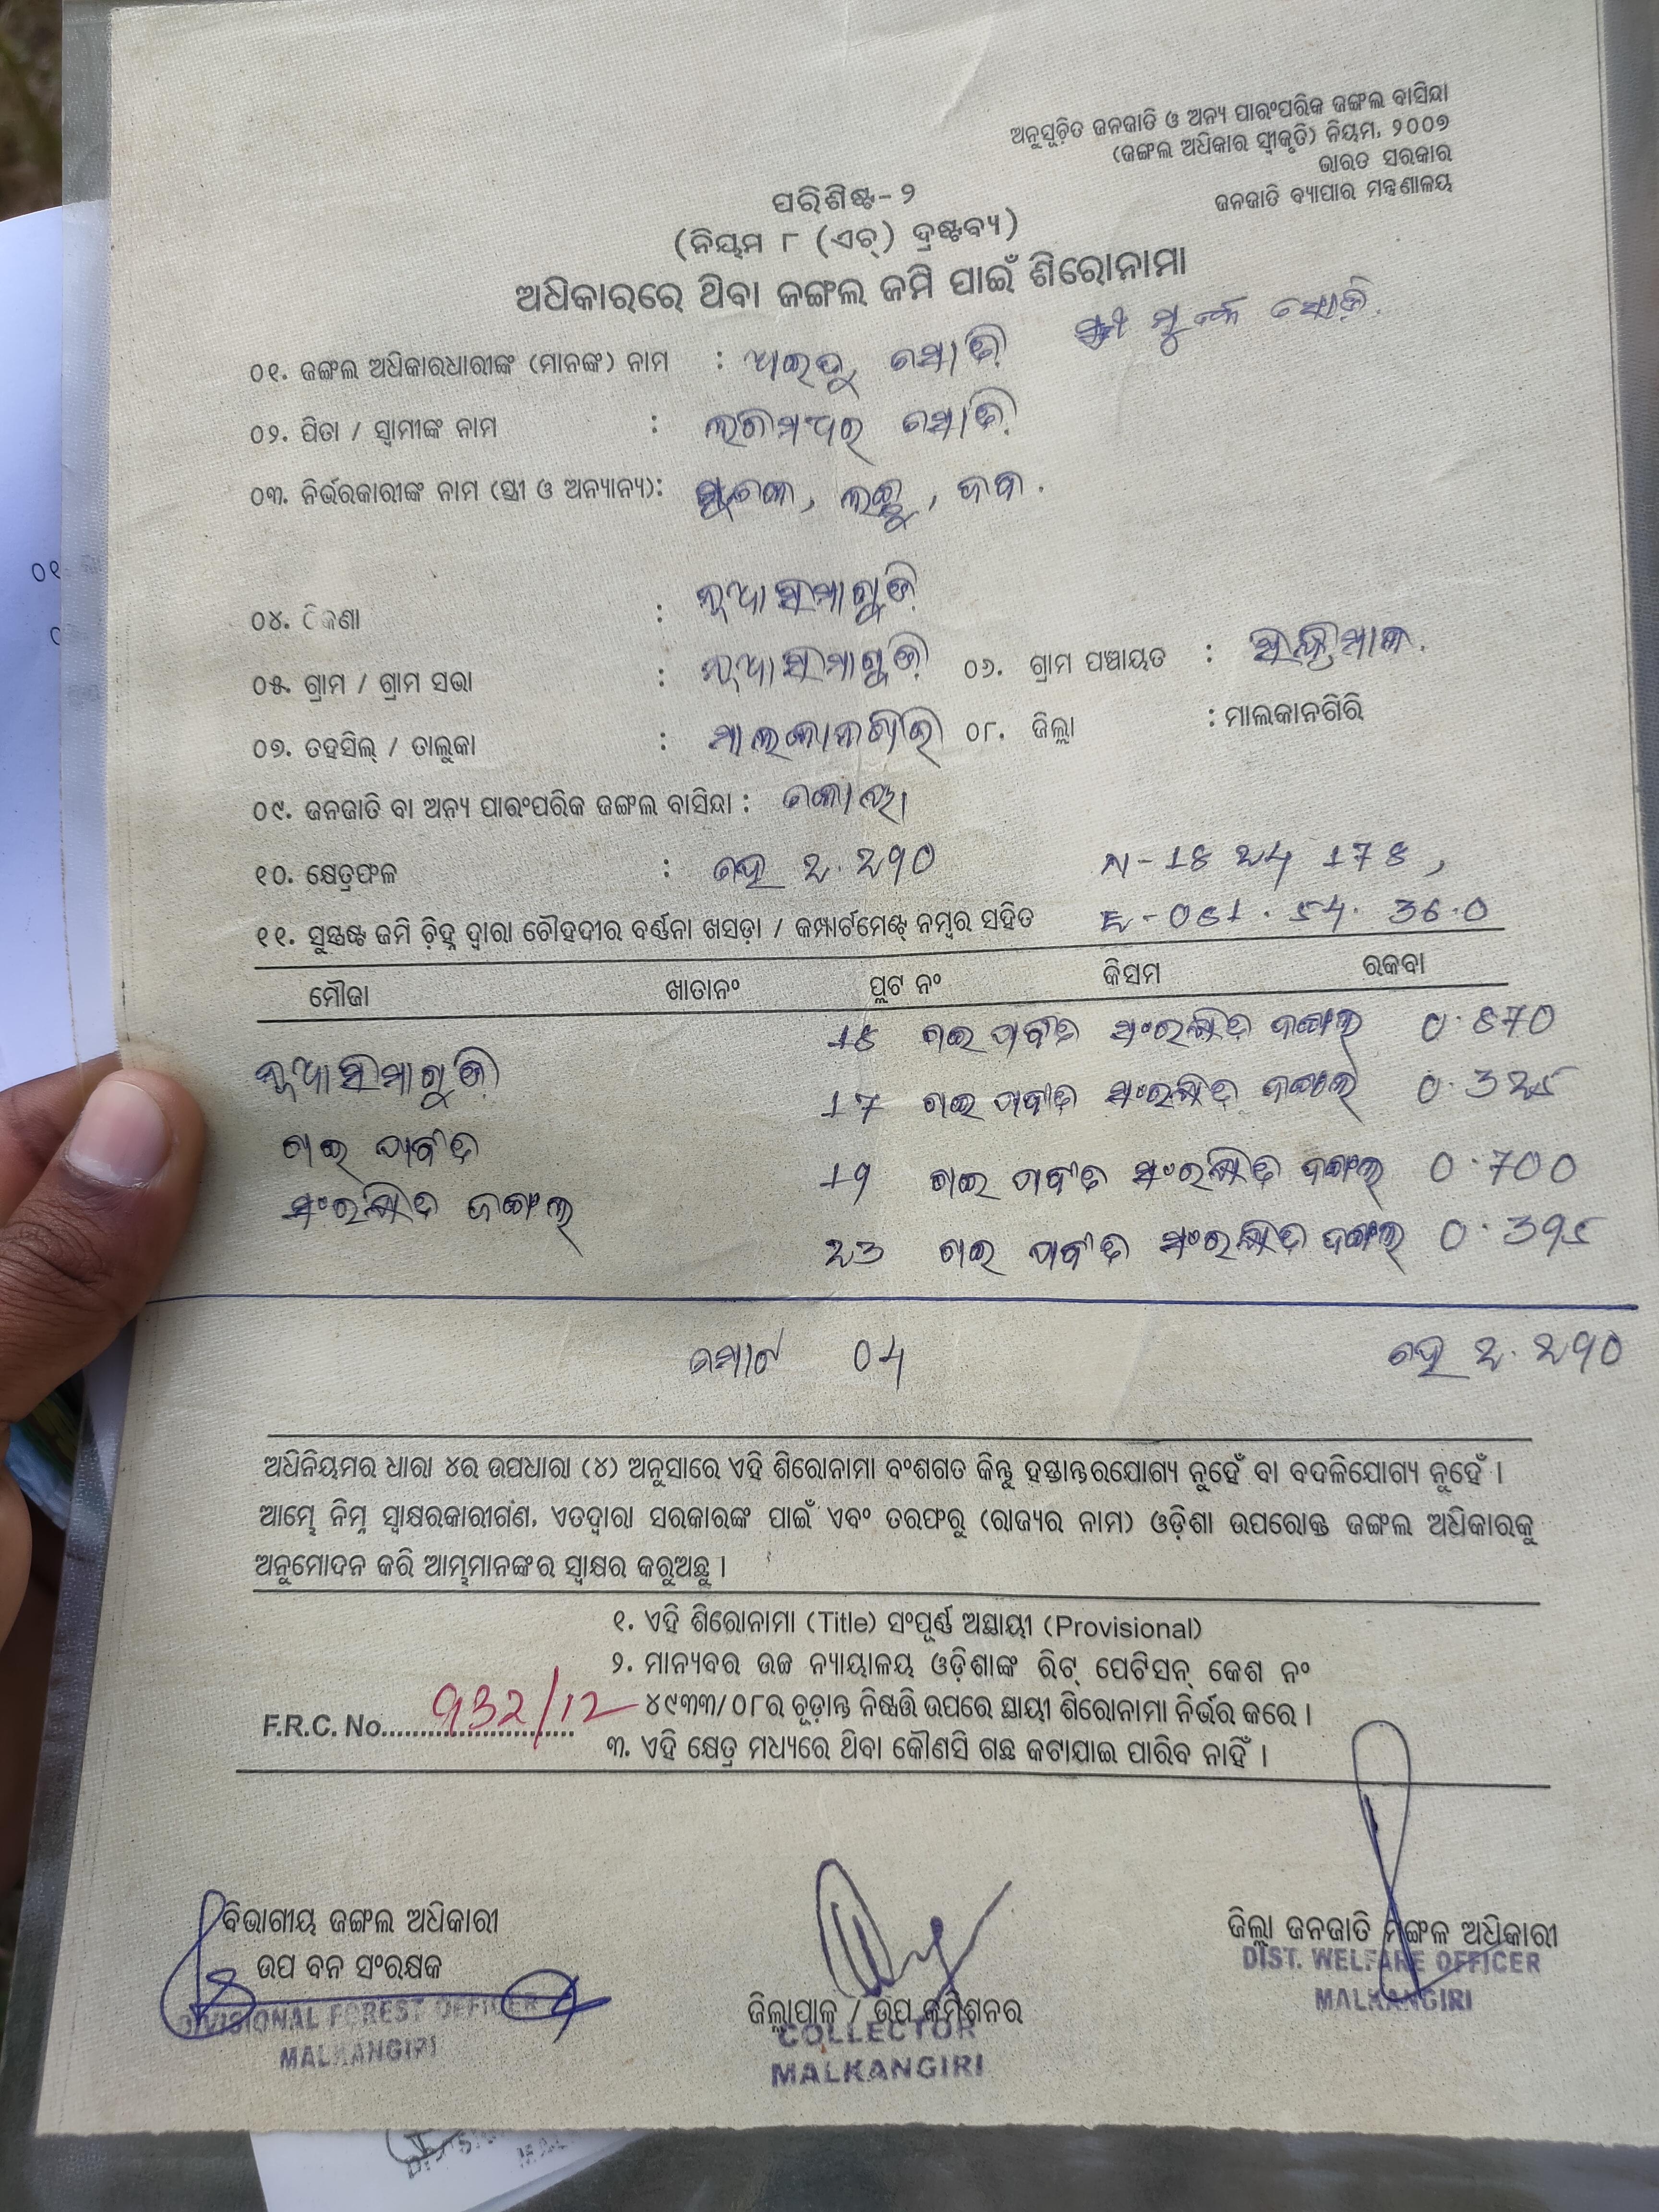 ଅନୁସୂଚିତ ଜନଜାତି ଓ ଅନ୍ୟ ପାରଂପରିକ ଜଙ୍ଗଲ ବାସିନ୍ଦା
(ଜଙ୍ଗଲ ଅଧିକାର ସ୍ୱୀକୃତି) ନିୟମ, ୨୦୦୭
ଭାରତ ସରକାର
ଜନଜାତି ବ୍ୟାପାର ମନ୍ତ୍ରଣାଳୟ
ପରିଶିଷ୍ଟ-୨
(ନିୟମ ୮ (ଏଚ୍) ଦ୍ରଷ୍ଟବ୍ୟ)
ଅଧିକାରରେ ଥିବା ଜଙ୍ଗଲ ଜମି ପାଇଁ ଶିରୋନାମା
୦୧. ଜଙ୍ଗଲ ଅଧିକାରଧାରୀଙ୍କ (ମାନଙ୍କ) ନାମ :
୦୨. ପିତା / ସ୍ୱାମୀଙ୍କ ନାମ :
୦୩. ନିର୍ଭରକାରୀଙ୍କ ନାମ (ସ୍ତ୍ରୀ ଓ ଅନ୍ୟାନ୍ୟ):
୦୪. ଠିକଣା : ନୂଆସିମାଗୁଡ଼ି
୦୫. ଗ୍ରାମ / ଗ୍ରାମ ସଭା : ନୂଆସିମାଗୁଡ଼ି ୦୬. ଗ୍ରାମ ପଞ୍ଚାୟତ :
୦୭. ତହସିଲ୍ / ତାଲୁକା : ମାଲକାନଗିରି ୦୮. ଜିଲ୍ଲା : ମାଲକାନଗିରି
୦୯. ଜନଜାତି ବା ଅନ୍ୟ ପାରଂପରିକ ଜଙ୍ଗଲ ବାସିନ୍ଦା : କୋୟା
୧୦. କ୍ଷେତ୍ରଫଳ : ହେ 2.290 N-18 24 178,
୧୧. ସୁସ୍ପଷ୍ଟ ଜମି ଚିହ୍ନ ଦ୍ୱାରା ଚୌହଦୀର ବର୍ଣ୍ଣନା ଖସଡ଼ା / କମ୍ପାର୍ଟମେଣ୍ଟ୍ ନମ୍ବର ସହିତ E-081.54.36.0
ମୌଜା ଖାତାନଂ ପ୍ଲଟ ନଂ କିସମ ରକବା
18 ସଂରକ୍ଷିତ ଜଙ୍ଗଲ 0.870
ନୂଆସିମାଗୁଡ଼ି
17 ସଂରକ୍ଷିତ ଜଙ୍ଗଲ 0.325
19 ସଂରକ୍ଷିତ ଜଙ୍ଗଲ 0.700
ସଂରକ୍ଷିତ ଜଙ୍ଗଲ
23 ସଂରକ୍ଷିତ ଜଙ୍ଗଲ 0.395
ମୋଟ 04 ହେ 2.290
ଅଧିନିୟମର ଧାରା ୪ର ଉପଧାରା (୪) ଅନୁସାରେ ଏହି ଶିରୋନାମା ବଂଶଗତ କିନ୍ତୁ ହସ୍ତାନ୍ତରଯୋଗ୍ୟ ନୁହେଁ ବା ବଦଳିଯୋଗ୍ୟ ନୁହେଁ ।
ଆମ୍ଭେ ନିମ୍ନ ସ୍ୱାକ୍ଷରକାରୀଗଣ, ଏତଦ୍ୱାରା ସରକାରଙ୍କ ପାଇଁ ଏବଂ ତରଫରୁ (ରାଜ୍ୟର ନାମ) ଓଡ଼ିଶା ଉପରୋକ୍ତ ଜଙ୍ଗଲ ଅଧିକାରକୁ
ଅନୁମୋଦନ କରି ଆମ୍ଭମାନଙ୍କର ସ୍ୱାକ୍ଷର କରୁଅଛୁ ।
୧. ଏହି ଶିରୋନାମା (Title) ସଂପୂର୍ଣ୍ଣ ଅସ୍ଥାୟୀ (Provisional)
୨. ମାନ୍ୟବର ଉଚ୍ଚ ନ୍ୟାୟାଳୟ ଓଡ଼ିଶାଙ୍କ ରିଟ୍ ପେଟିସନ୍ କେଶ ନଂ
୪୯୩୩/୦୮ର ଚୂଡ଼ାନ୍ତ ନିଷ୍ପତ୍ତି ଉପରେ ସ୍ଥାୟୀ ଶିରୋନାମା ନିର୍ଭର କରେ ।
F.R.C. No. 932/12
୩. ଏହି କ୍ଷେତ୍ର ମଧ୍ୟରେ ଥିବା କୌଣସି ଗଛ କଟାଯାଇ ପାରିବ ନାହିଁ ।
ବିଭାଗୀୟ ଜଙ୍ଗଲ ଅଧିକାରୀ
ଉପ ବନ ସଂରକ୍ଷକ
DIVISIONAL FOREST OFFICER
MALKANGIRI
ଜିଲ୍ଲାପାଳ / ଉପ କମିଶନର
COLLECTOR
MALKANGIRI
ଜିଲ୍ଲା ଜନଜାତି ମଙ୍ଗଳ ଅଧିକାରୀ
DIST. WELFARE OFFICER
MALKANGIRI